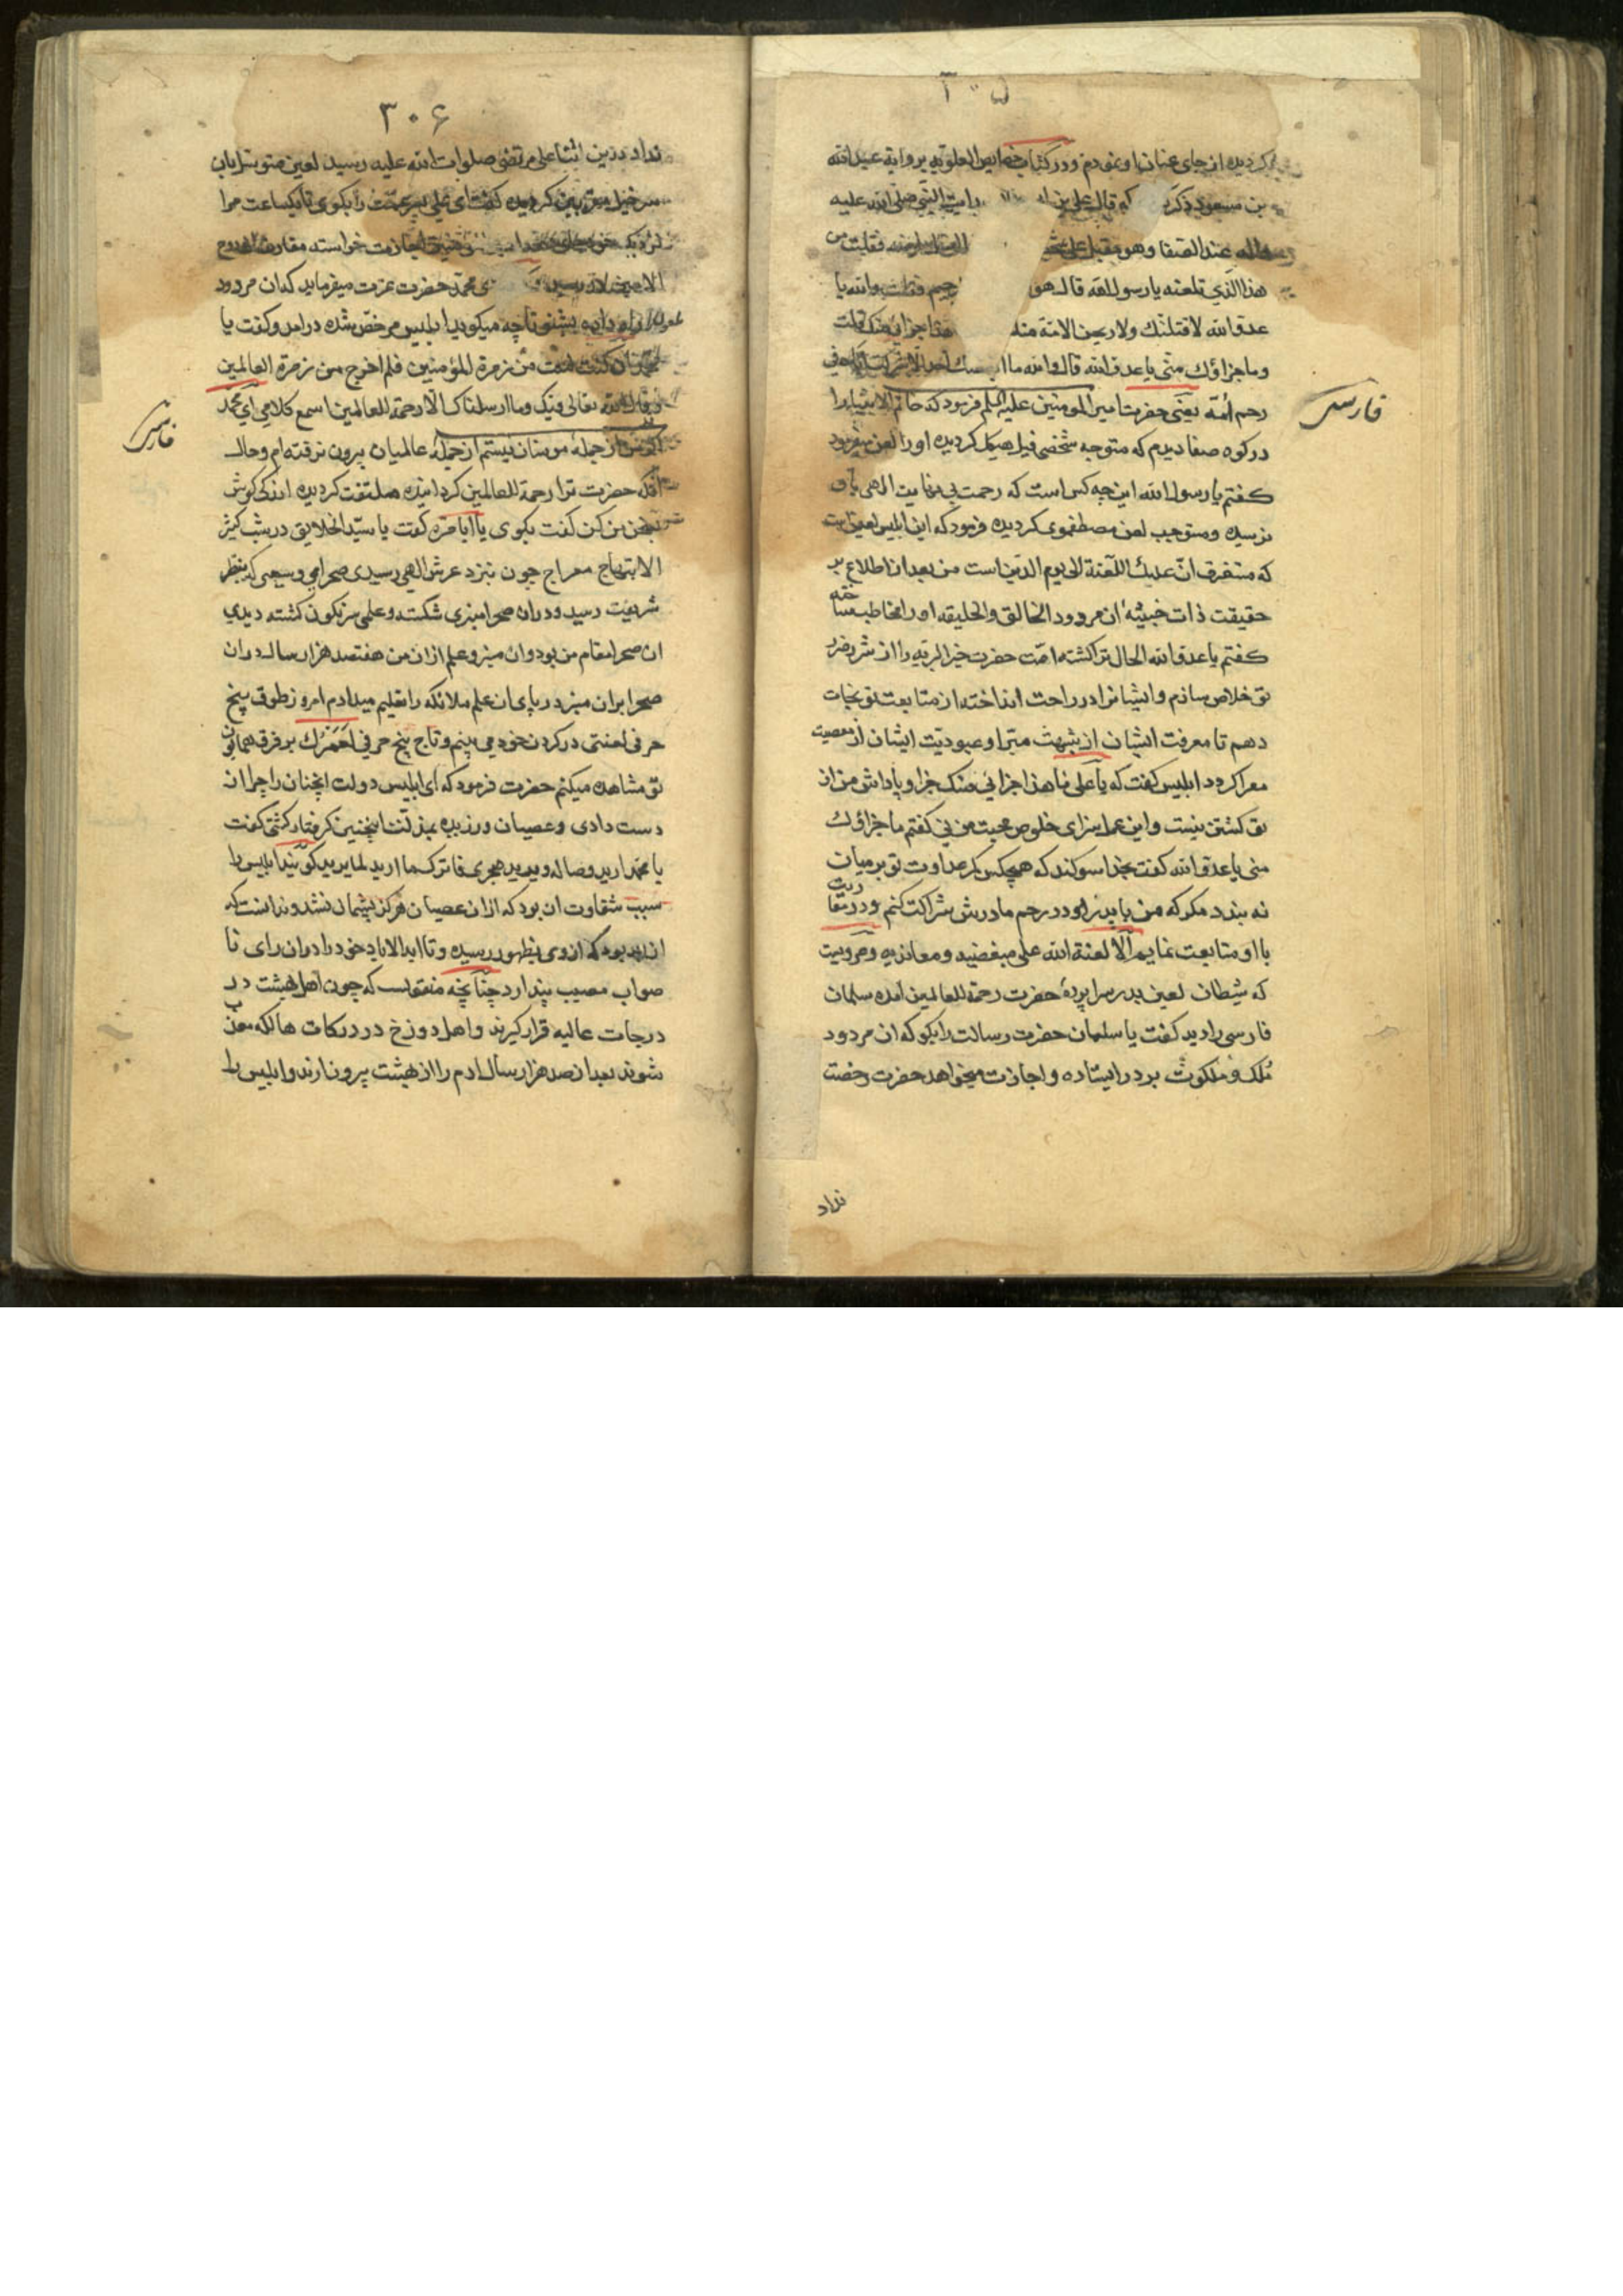 ۳۰۵
کردیده از جای عنان او نمودم و در کتاب خصایص العلویه بروایة عبد الله
بن مسعود ذکر که قال علی بن رایت النبی صلی الله علیه
عند الصفا وهو مقبل علی فقلت من
هذا الذی تلعنه یا رسول الله قال هو فقلت والله یا
عدو الله لاقتلنك ولاریحن الامة منك هذا جزائی منک قلت
وما جزاؤك منی یا عدو الله قال والله ما
رحم امّه یعنی حضرت امیر المومنین علیه السلم فرمود که خاتم الانبیا را
در کوه صفا دیدم که متوجه شخصی فیل هیکل کردیده او را لعن میفرمود
کفتم یا رسول الله این چه کس است که رحمت بی نهایت الهی باو
نرسیده ومستوجب لعن مصطفوی کردیده فرمود که این ابلیس لعین است
که مستغرف انّ علیك اللعنة الی یوم الدین است من بعد از اطلاع بر
حقیقت ذات خبیثهٔ ان مردود الخالق والخلیقه او را مخاطب ساخته
کفتم یا عدو الله الحال ترا کشته امّت حضرت خیر البریه را از شر و ضرر
تو خلاص سازم و ایشانرا در راحت انداخته از متابعت تو نجات
دهم تا معرفت ایشان از شبهت مبرّا و عبودیّت ایشان از معصیت
معرا کردد ابلیس کفت که یا علی ما هذا جزائی منک جزا و پاداش من از
تو کشتن نیست و این عمل سزای خلوص محبت من نی کفتم ما جزاؤك
منی یا عدو الله کفت بخدا سوکند که هیچکس کمر عداوت تو بر میان
نه بندد مکر که من با پدر او در رحم مادرش شراکت کنم و در تربیت
با او متابعت نمایم الا لعنة الله علی مبغضیه ومعاندیه ومرویست
که شیطان لعین بدر سراپردهٔ حضرت رحمة للعالمین امده سلمان
فارسی را دید کفت یا سلمان حضرت رسالت را بکو که ان مردود
مُلک و ملکوت بر در ایستاده و اجازت میخواهد حضرت رخصت
نداد
فارسی
۳۰۶
نداد درین اثنا علی مرتضی صلوات الله علیه رسید لعین
کفت ای علی پسر عمّت را بکوی تا یکساعت مرا
اجازت خواسته مقارن
الامین رسید محمّد حضرت عزت میفرماید که ان مردود
راه داده بشنو تا چه میکوید ابلیس مرخّص شده درامد و کفت یا
محمّد ان کنت لست من زمرة المؤمنین فلم اخرج من زمرة العالمین
وقال الله تعالی فیک وما ارسلناک الّا رحمة للعالمین اسمع کلامی ای محمّد
از جملهٔ مومنان نیستم از جملهٔ عالمیان بیرون نرفته‌ام و حال
آنکه حضرت ترا رحمة للعالمین کردانیده ملتفت کردیده اندکی کوش
بسخن من کن کفت بکوی یا ابا مره کفت یا سیّد الخلایق در شب کثیر
الابتهاج معراج چون بنزد عرش الهی رسیدی صحرایی وسیعی که بنظر
شریفت رسید و دران صحرا منبری شکسته و علمی سرنکون کشته دیدی
ان صحرا مقام من بود وان منبر و علم از ان من هفتصد هزار سال دران
صحرا بران منبر در پای ان علم ملائکه را تعلیم میدادم امروز طوق پنج
حرفی لعنتی در کردن خود می بینم و تاج پنج حرفی لعمرك بر فرق همایون
تو مشاهده میکنم حضرت فرمود که ای ابلیس دولت انچنان را چرا از
دست دادی وعصیان ورزیده بمذلت اینچنین کرفتار کشتی کفت
یا محمّد ارید وصاله ویرید هجری فاترک ما ارید لما یرید کویند ابلیس را
سبب شقاوت ان بود که از ان عصیان هرکز پشیمان نشد و ندانست که
ان بد بود که ازوی بظهور رسیده و تا ابد الاباد خود را دران رای نا
صواب مصیب پندارد چنانچه منقولست که چون اهل بهشت در
درجات عالیه قرار کیرند و اهل دوزخ در درکات هالکه معذب
شوند بعد از صد هزار سال ادم را از بهشت بیرون ارند و ابلیس را
فارسی